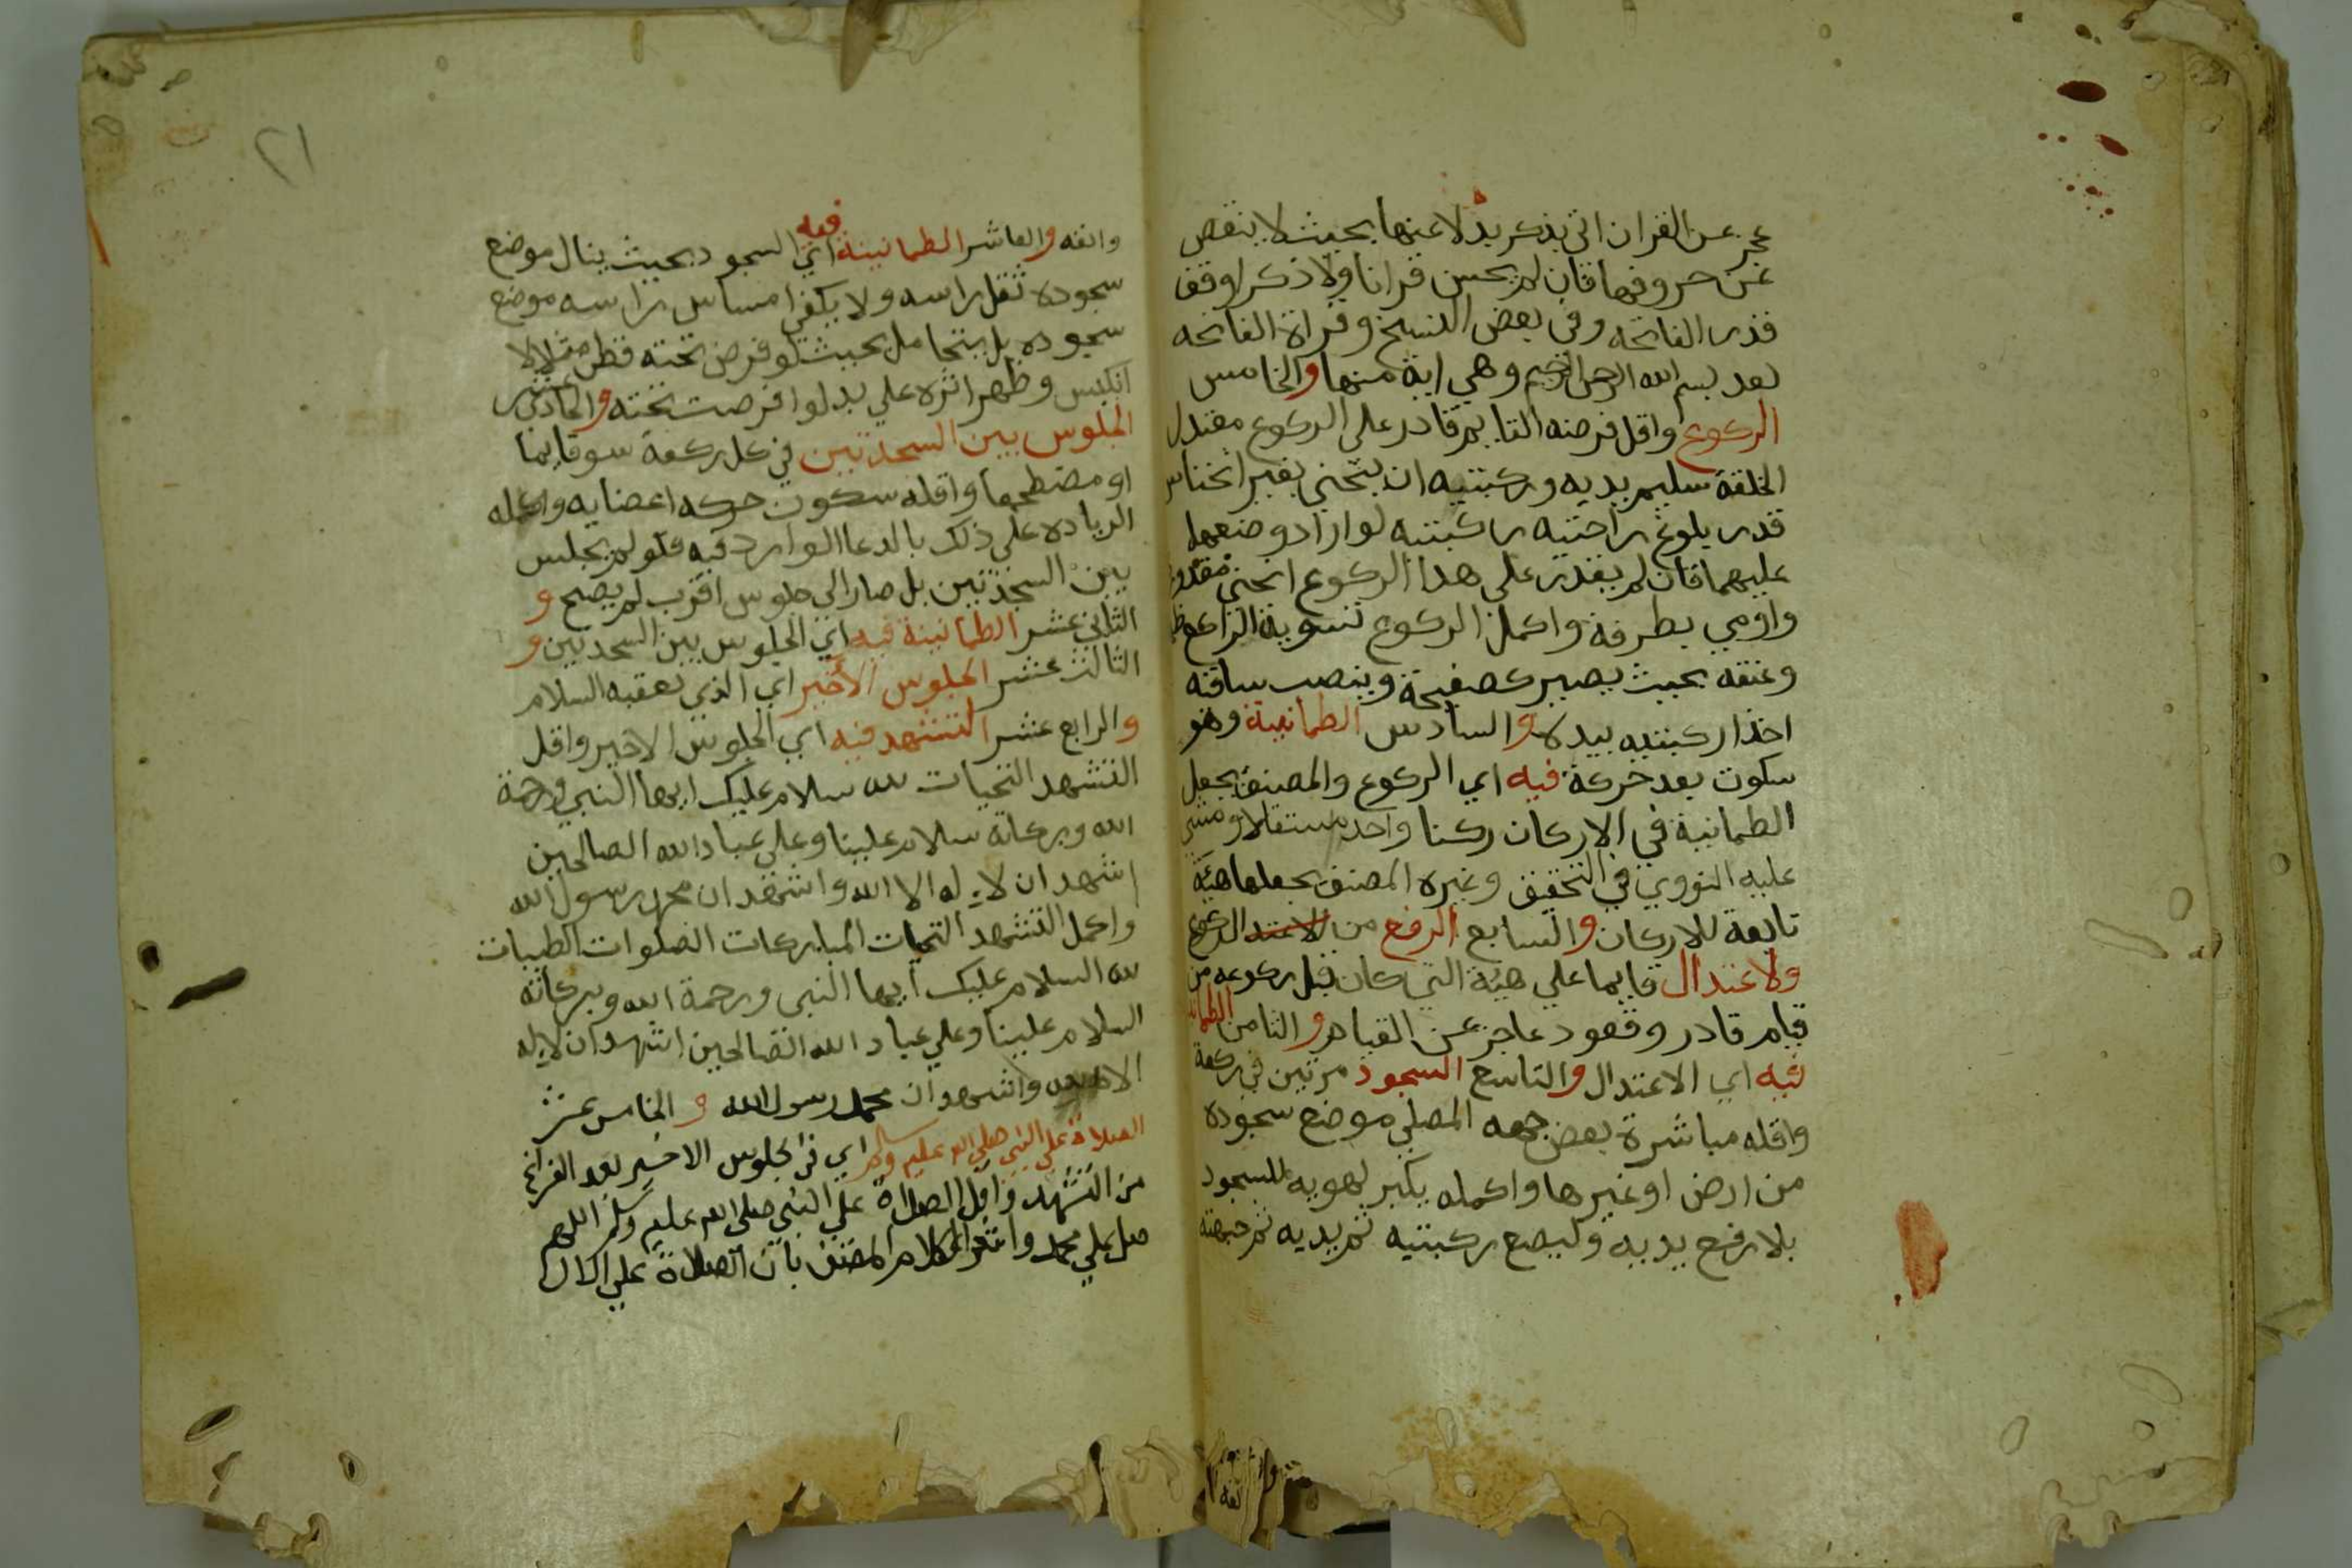 عجز عن القران اتي بذكر بدلا عنها بحيث لا ينقص
عن حروفها فان لم يحسن قرانا ولا ذكرا وقف
قدر الفاتحه وفي بعض النسخ وقراة الفاتحه
بعد بسم الله الرحمن الرحيم وهي اية منها والخامس
الركوع واقل فرضه القايم قادر على الركوع معتدل
الخلقة سليم يديه وركبتيه ان ينحني بغير انخناس
قدر بلوغ راحتيه ركبتيه لو اراد وضعهما
عليهما فان لم يقدر على هذا الركوع انحنى مقدوره
واومي بطرفه واكمل الركوع تسوية الراكع ظهره
وعنقه بحيث يصير كصفيحة وينصب ساقيه
اخذا ركبتيه بيديه والسادس الطمانينة وهو
سكون بعد حركة فيه اي الركوع والمصنف يجعل
الطمانينة في الاركان ركنا واحد مستقلا ومشي
عليه النووي في التحقيق وغيره المصنف يجعلها هيئة
تابعة للاركان والسابع الرفع من الاعتد الركوع
ولاعتدال قايما علي هيئة التي كان قبل ركوعه من
قيام قادر وقعود عاجز عن القيام والثامن الطمانينة
فيه اي الاعتدال والتاسع السجود مرتين في ركعة
واقله مباشرة بعض جبهه المصلي موضع سجوده
من ارض او غيرها واكمله يكبر لهويه للسجود
بلا رفع يديه وليضع ركبتيه ثم يديه ثم جبهته
وانفه
وانفه والعاشر الطمانينة فيه اي السجود بحيث ينال موضع
سجوده ثقل راسه ولا يكفي امساس راسه موضع
سجوده بل يتحامل بحيث لو فرض تحته قطن مثلا لا
انكبس وظهر اثره علي يد لوا فرضت تحته والحادي عشر
الجلوس بين السجدتين في كل ركعة سو قايما
او مضطجعا واقله سكون حركه اعضايه واكمله
الزياده علي ذلك بالدعا الوارد فيه فلو لم يجلس
بين السجدتين بل صار الي جلوس اقرب لم يصح و
الثاني عشر الطمانينة فيه اي الجلوس بين السجدتين و
الثالث عشر الجلوس الأخير اي الذي يعقبه السلام
والرابع عشر التشهد فيه اي الجلوس الاخير واقل
التشهد التحيات لله سلام عليك ايها النبي ورحمة
الله وبركاته سلام علينا وعلي عباد الله الصالحين
اشهد ان لا اله الا الله واشهد ان محمد رسول الله
واكمل التشهد التحيات المباركات الصلوات الطيبات
لله السلام عليك ايها النبي ورحمة الله وبركاته
السلام علينا وعلي عباد الله الصالحين اشهد ان لا اله
الا الله واشهد ان محمد رسول الله و الخامس عشر
الصلاة علي النبي صلي الله عليه وسلم اي في الجلوس الاخير بعد الفراغ
من التشهد واقل الصلاة علي النبي صلى الله عليه وسلم اللهم
صل علي محمد واشعر كلام المصنف بان الصلاة علي الال
٢١